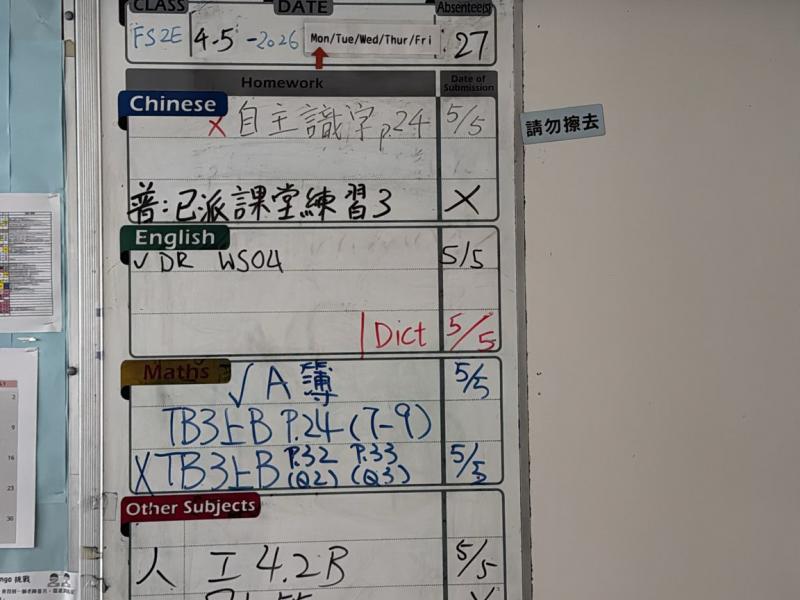 CLASS DATE Absentee(s)
FS2E 4-5-2026 Mon/Tue/Wed/Thur/Fri 27
Homework Date of Submission
Chinese
x 自主識字 p.24 5/5
請勿擦去
普:已派課堂練習3 X
English
✓ DR WS04 5/5
1 Dict 5/5
Maths
√ A簿 5/5
TB3上B P.24 (7-9)
X TB3上B P.32 (Q2) P.33 (Q3) 5/5
Other Subjects
人 工4.2B 5/5
2
9
16
23
30
挑戰